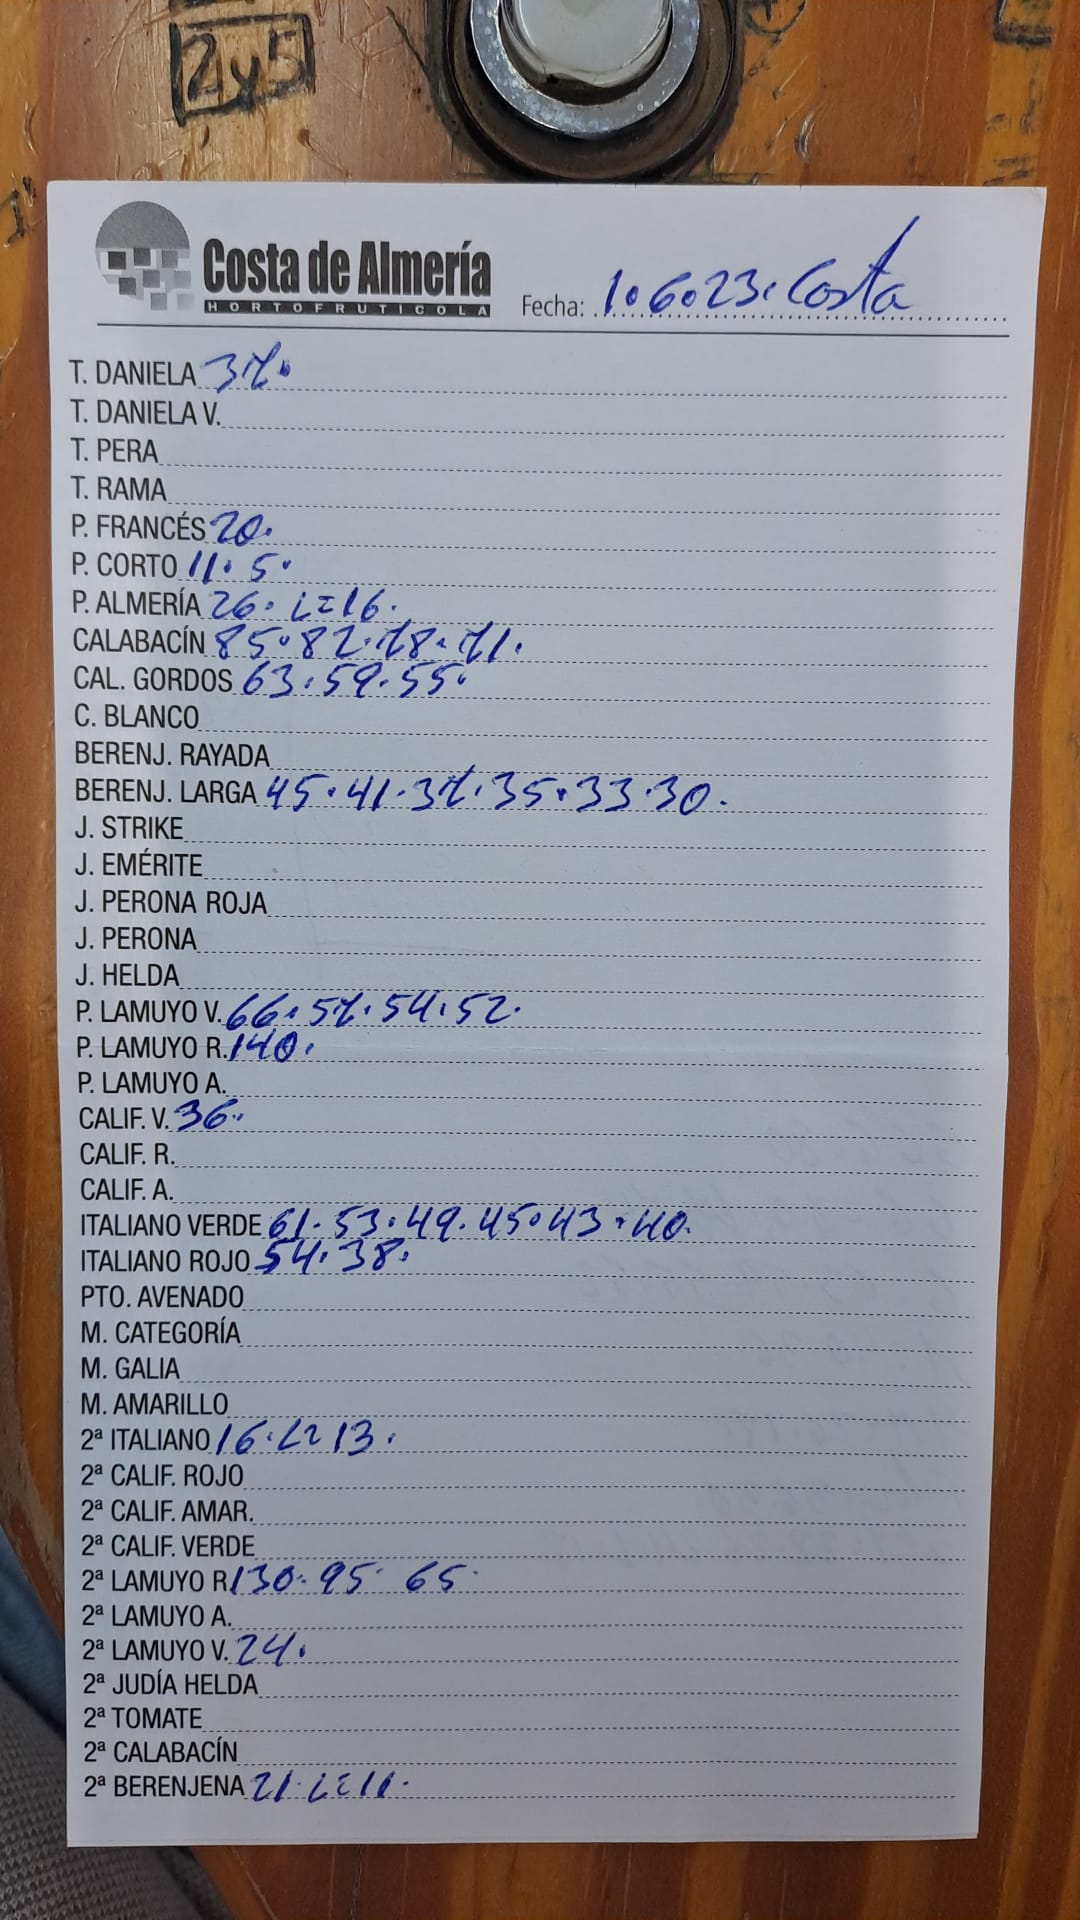 2y5
Costa de Almería
HORTOFRUTICOLA
Fecha: 1.6.23. Costa
T. DANIELA 37.
T. DANIELA V.
T. PERA
T. RAMA
P. FRANCÉS 20.
P. CORTO 11. 5.
P. ALMERÍA 26. L=16.
CALABACÍN 85.82.78.71.
CAL. GORDOS 63.59.55.
C. BLANCO
BERENJ. RAYADA
BERENJ. LARGA 45.41.37.35.33.30.
J. STRIKE
J. EMÉRITE
J. PERONA ROJA
J. PERONA
J. HELDA
P. LAMUYO V. 66.57.54.52.
P. LAMUYO R. 140.
P. LAMUYO A.
CALIF. V. 36.
CALIF. R.
CALIF. A.
ITALIANO VERDE 61.53.49.45.43.40.
ITALIANO ROJO 54.38.
PTO. AVENADO
M. CATEGORÍA
M. GALIA
M. AMARILLO
2ª ITALIANO 16. L=13.
2ª CALIF. ROJO
2ª CALIF. AMAR.
2ª CALIF. VERDE
2ª LAMUYO R 130. 95. 65.
2ª LAMUYO A.
2ª LAMUYO V. 24.
2ª JUDÍA HELDA
2ª TOMATE
2ª CALABACÍN
2ª BERENJENA 21. L=11.